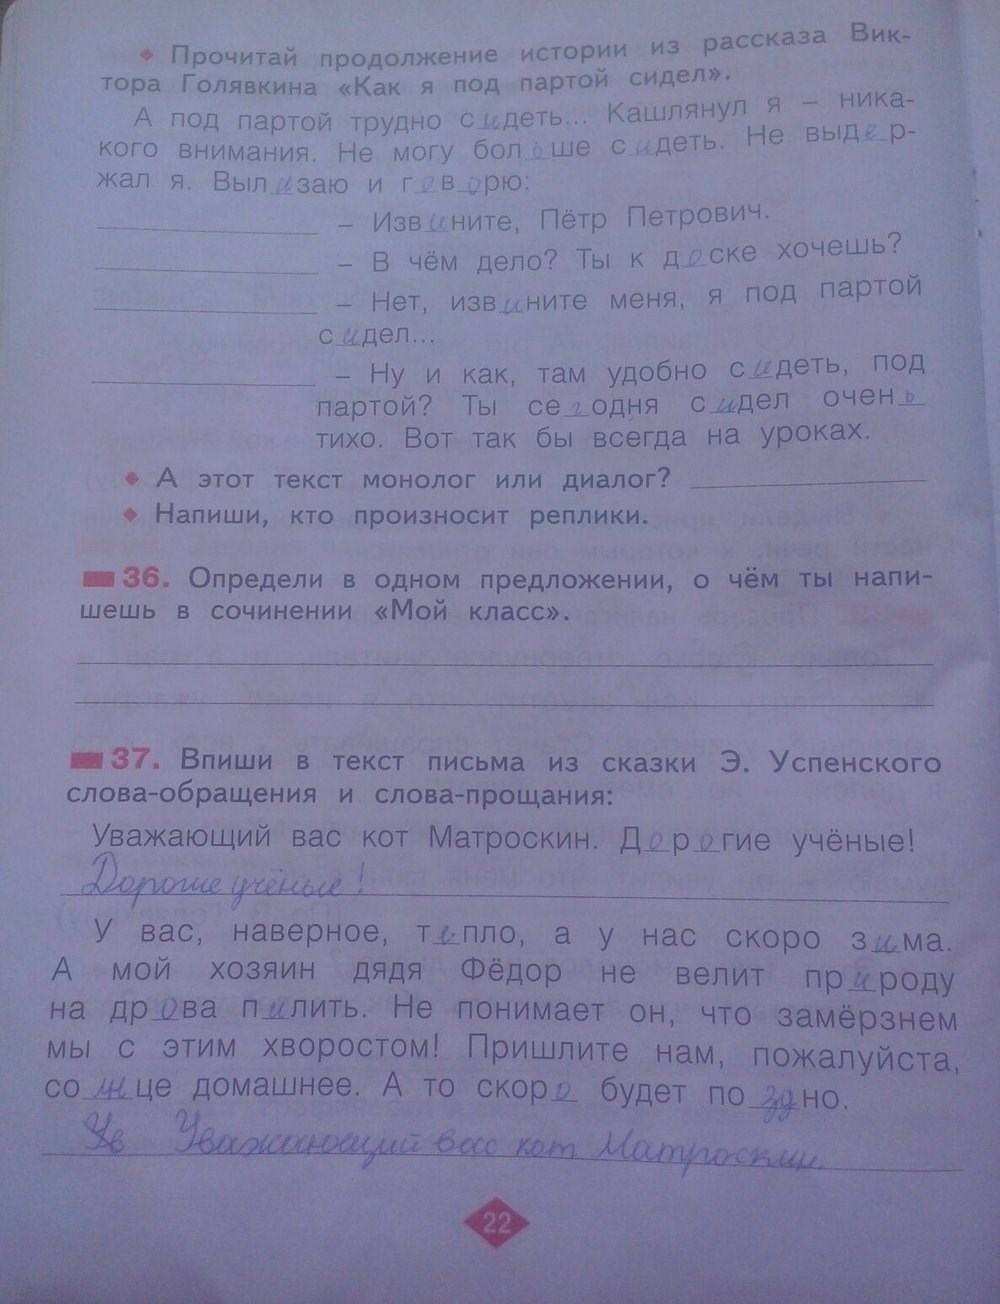 ◆ Прочитай продолжение истории из рассказа Вик-
тора Голявкина «Как я под партой сидел».
А под партой трудно сидеть... Кашлянул я – ника-
кого внимания. Не могу больше сидеть. Не выдер-
жал я. Вылизаю и говорю:
– Извините, Пётр Петрович.
– В чём дело? Ты к доске хочешь?
– Нет, извините меня, я под партой
сидел...
– Ну и как, там удобно сидеть, под
партой? Ты сегодня сидел очень
тихо. Вот так бы всегда на уроках.
◆ А этот текст монолог или диалог?
◆ Напиши, кто произносит реплики.
36. Определи в одном предложении, о чём ты напи-
шешь в сочинении «Мой класс».
37. Впиши в текст письма из сказки Э. Успенского
слова-обращения и слова-прощания:
Уважающий вас кот Матроскин. Дорогие учёные!
Дорогие учёные!
У вас, наверное, тепло, а у нас скоро зима.
А мой хозяин дядя Фёдор не велит природу
на дрова пилить. Не понимает он, что замёрзнем
мы с этим хворостом! Пришлите нам, пожалуйста,
солнце домашнее. А то скоро будет поздно.
Ув Уважающий вас кот Матроскин.
22